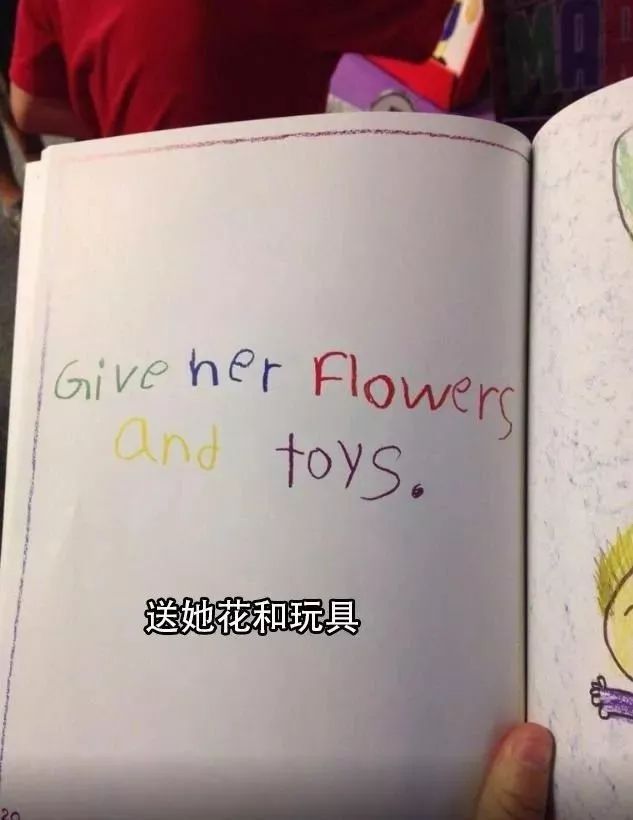 MA
Give her Flowers
and toys.
送她花和玩具
20